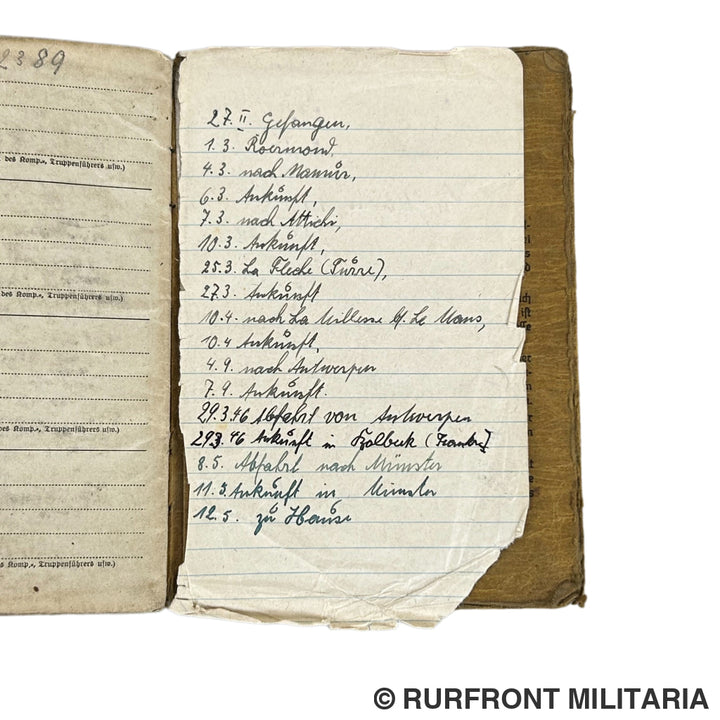 2389
des Komp.-, Truppenführers usw.)
des Komp.-, Truppenführers usw.)
des Komp.-, Truppenführers usw.)
s Komp.-, Truppenführers usw.)
27. II. Gefangen,
1.3. Roermond,
4.3. nach Namür,
6.3. Ankunft,
7.3. nach Attichi,
10.3. Ankunft,
25.3. La Fleche (Türre),
27.3. Ankunft
10.4. nach La Millesse b/. Le Mans,
10.4 Ankunft,
4.9. nach Antwerpen
7.9. Ankunft.
29.3.46 Abfahrt von Antwerpen
29.3.46 Ankunft in
8.5. Abfahrt nach Münster
11.3. Ankunft in Münster
12.5. zu Hause
© RURFRONT MILITARIA